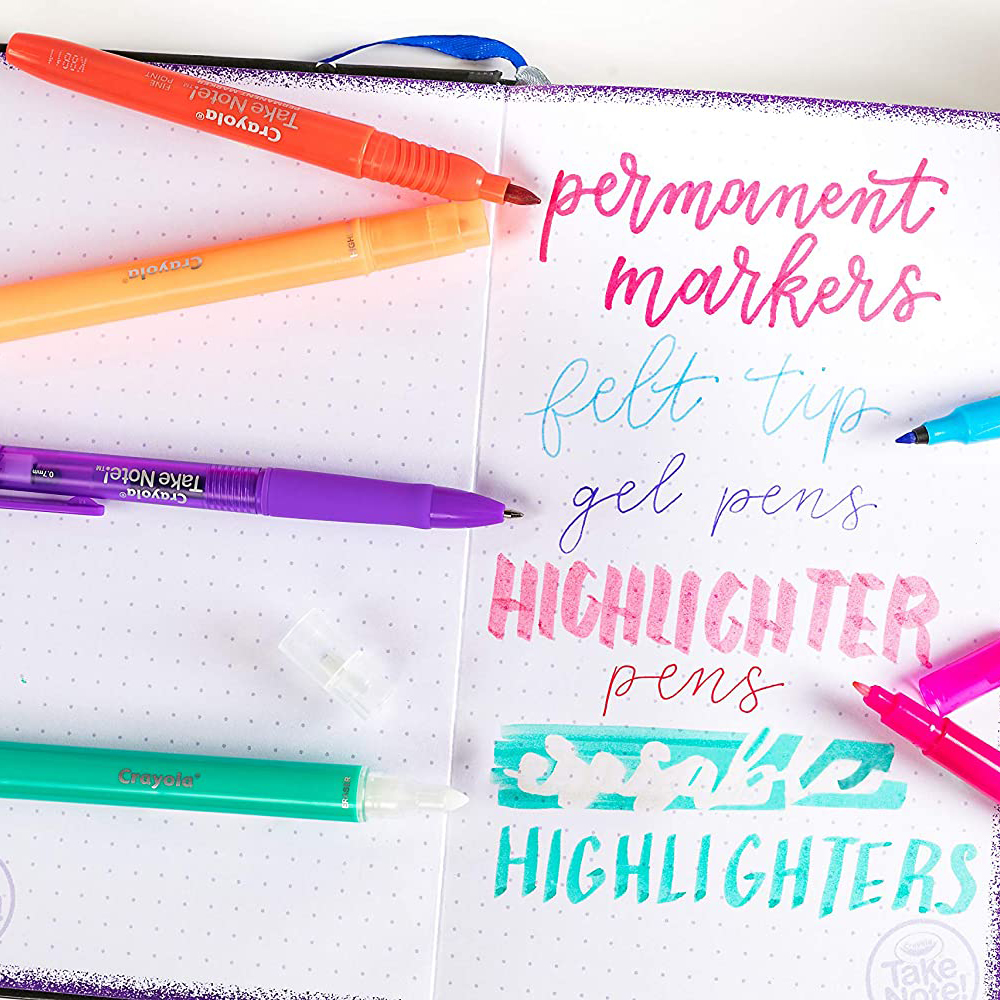 Crayola®
Take Note!™
PERMANENT MARKER
FINE
POINT
Crayola®
HIGH
Crayola®
Take Note!™
0.7mm
Crayola®
ERASER
permanent
markers
felt tip
gel pens
HIGHLIGHTER
pens
erasable
HIGHLIGHTERS
Crayola
Take
Note!